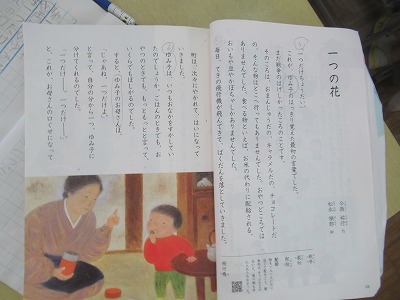 一つの花
今西 祐行 作
「一つだけちょうだい。」
これが、ゆみ子のはっきり覚えた最初の言葉でした。
まだ戦争のはげしかったころのことです。
そのころは、おまんじゅうだの、キャラメルだの、チョコレートだ
の、そんな物はどこへ行ってもありませんでした。おやつどころでは
ありませんでした。食べる物といえば、お米の代わりに配給される、
おいもや豆やかぼちゃしかありませんでした。
毎日、てきの飛行機が飛んできて、ばくだんを落としていきました。
町は、次々にやかれて、はいになって
いきました。
ゆみ子は、いつもおなかをすかしてい
たのでしょうか。ごはんのときでも、お
やつのときでも、もっともっとと言って、
いくらでもほしがるのでした。
すると、ゆみ子のお母さんは、
「じゃあね、一つだけよ。」
と言って、自分の分から一つ、ゆみ子に
分けてくれるのでした。
「一つだけ――。一つだけ――。」
と、これが、お母さんの口ぐせになって